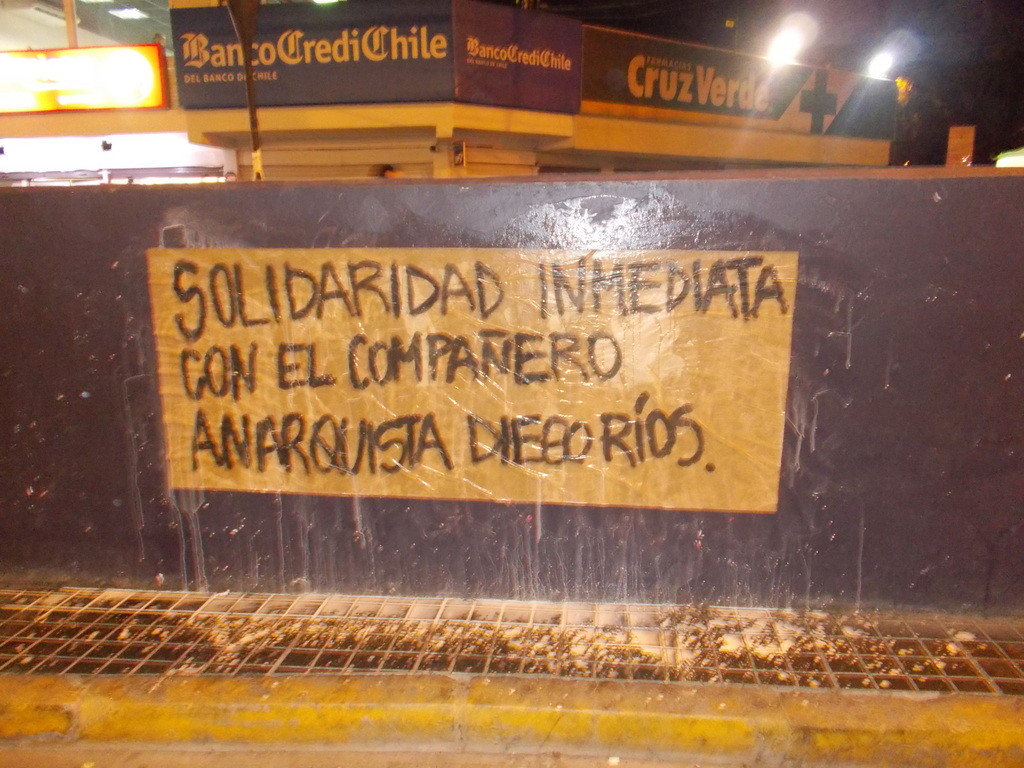 BancoCrediChile
DEL BANCO DE CHILE
BancoCrediChile
DEL BANCO DE CHILE
FARMACIAS
Cruz Verde
SOLIDARIDAD INMEDIATA
CON EL COMPAÑERO
ANARQUISTA DIEGO RÍOS.